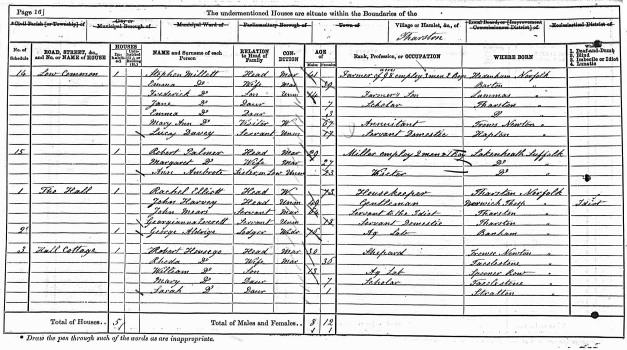 Page 16]
The undermentioned Houses are situate within the Boundaries of the
Civil Parish [or Township] of
City or Municipal Borough of
Municipal Ward of
Parliamentary Borough of
Town of
Village or Hamlet, &c., of
Local Board, or [Improvement Commissioners District] of
Ecclesiastical District of
Tharston
No. of Schedule
ROAD, STREET, &c., and No. or NAME of HOUSE
HOUSES
NAME and Surname of each Person
RELATION to Head of Family
CONDITION
AGE of
Males
Females
Rank, Profession, or OCCUPATION
WHERE BORN
1. Deaf-and-Dumb
2. Blind
3. Imbecile or Idiot
4. Lunatic
14 Low Common 1 Stephen Millett Head Mar 41 Farmer of employ 2 men & Boy Hedenham Norfolk
Emma Do Wife Mar 39 Barton
Frederick Do Son Unm 14 Farmer's Son Lammas
Jane Do Daur 7 Scholar Tharston
Emma Do Daur 3 Do
Mary Ann Do Visitor W 67 Annuitant Trowse Newton
Lucy Davey Servant Unm 17 Servant Domestic Hapton
15 1 Robert Palmer Head Mar 29 Miller employ 2 men & Boy Lakenheath Suffolk
Margaret Do Wife Mar 27 Do
Ann Ambrose Sister in Law Unm 23 Visitor Do
1 The Hall 1 Rachel Elliott Head W 73 Housekeeper Tharston Norfolk
John Harvey Head Unm 49 Gentleman Norwich Thorp Idiot
John Mears Servant Mar 44 Servant to the Idiot Tharston
Georgianna Leverett Servant Unm 18 Servant Domestic Tharston
2 1 George Aldrige Lodger Widr 75 Ag Lab Banham
3 Hall Cottage 1 Robert Housego Head Mar 30 Shepard Trowse Newton
Rhoda Do Wife Mar 36 Tasleston
William Do Son 13 Ag Lab Spooner Row
Mary Do Daur 7 Scholar Tasleston
Sarah Do Daur 1 Stratton
Total of Houses.. 5
Total of Males and Females.. 8 12
* Draw the pen through such of the words as are inappropriate.